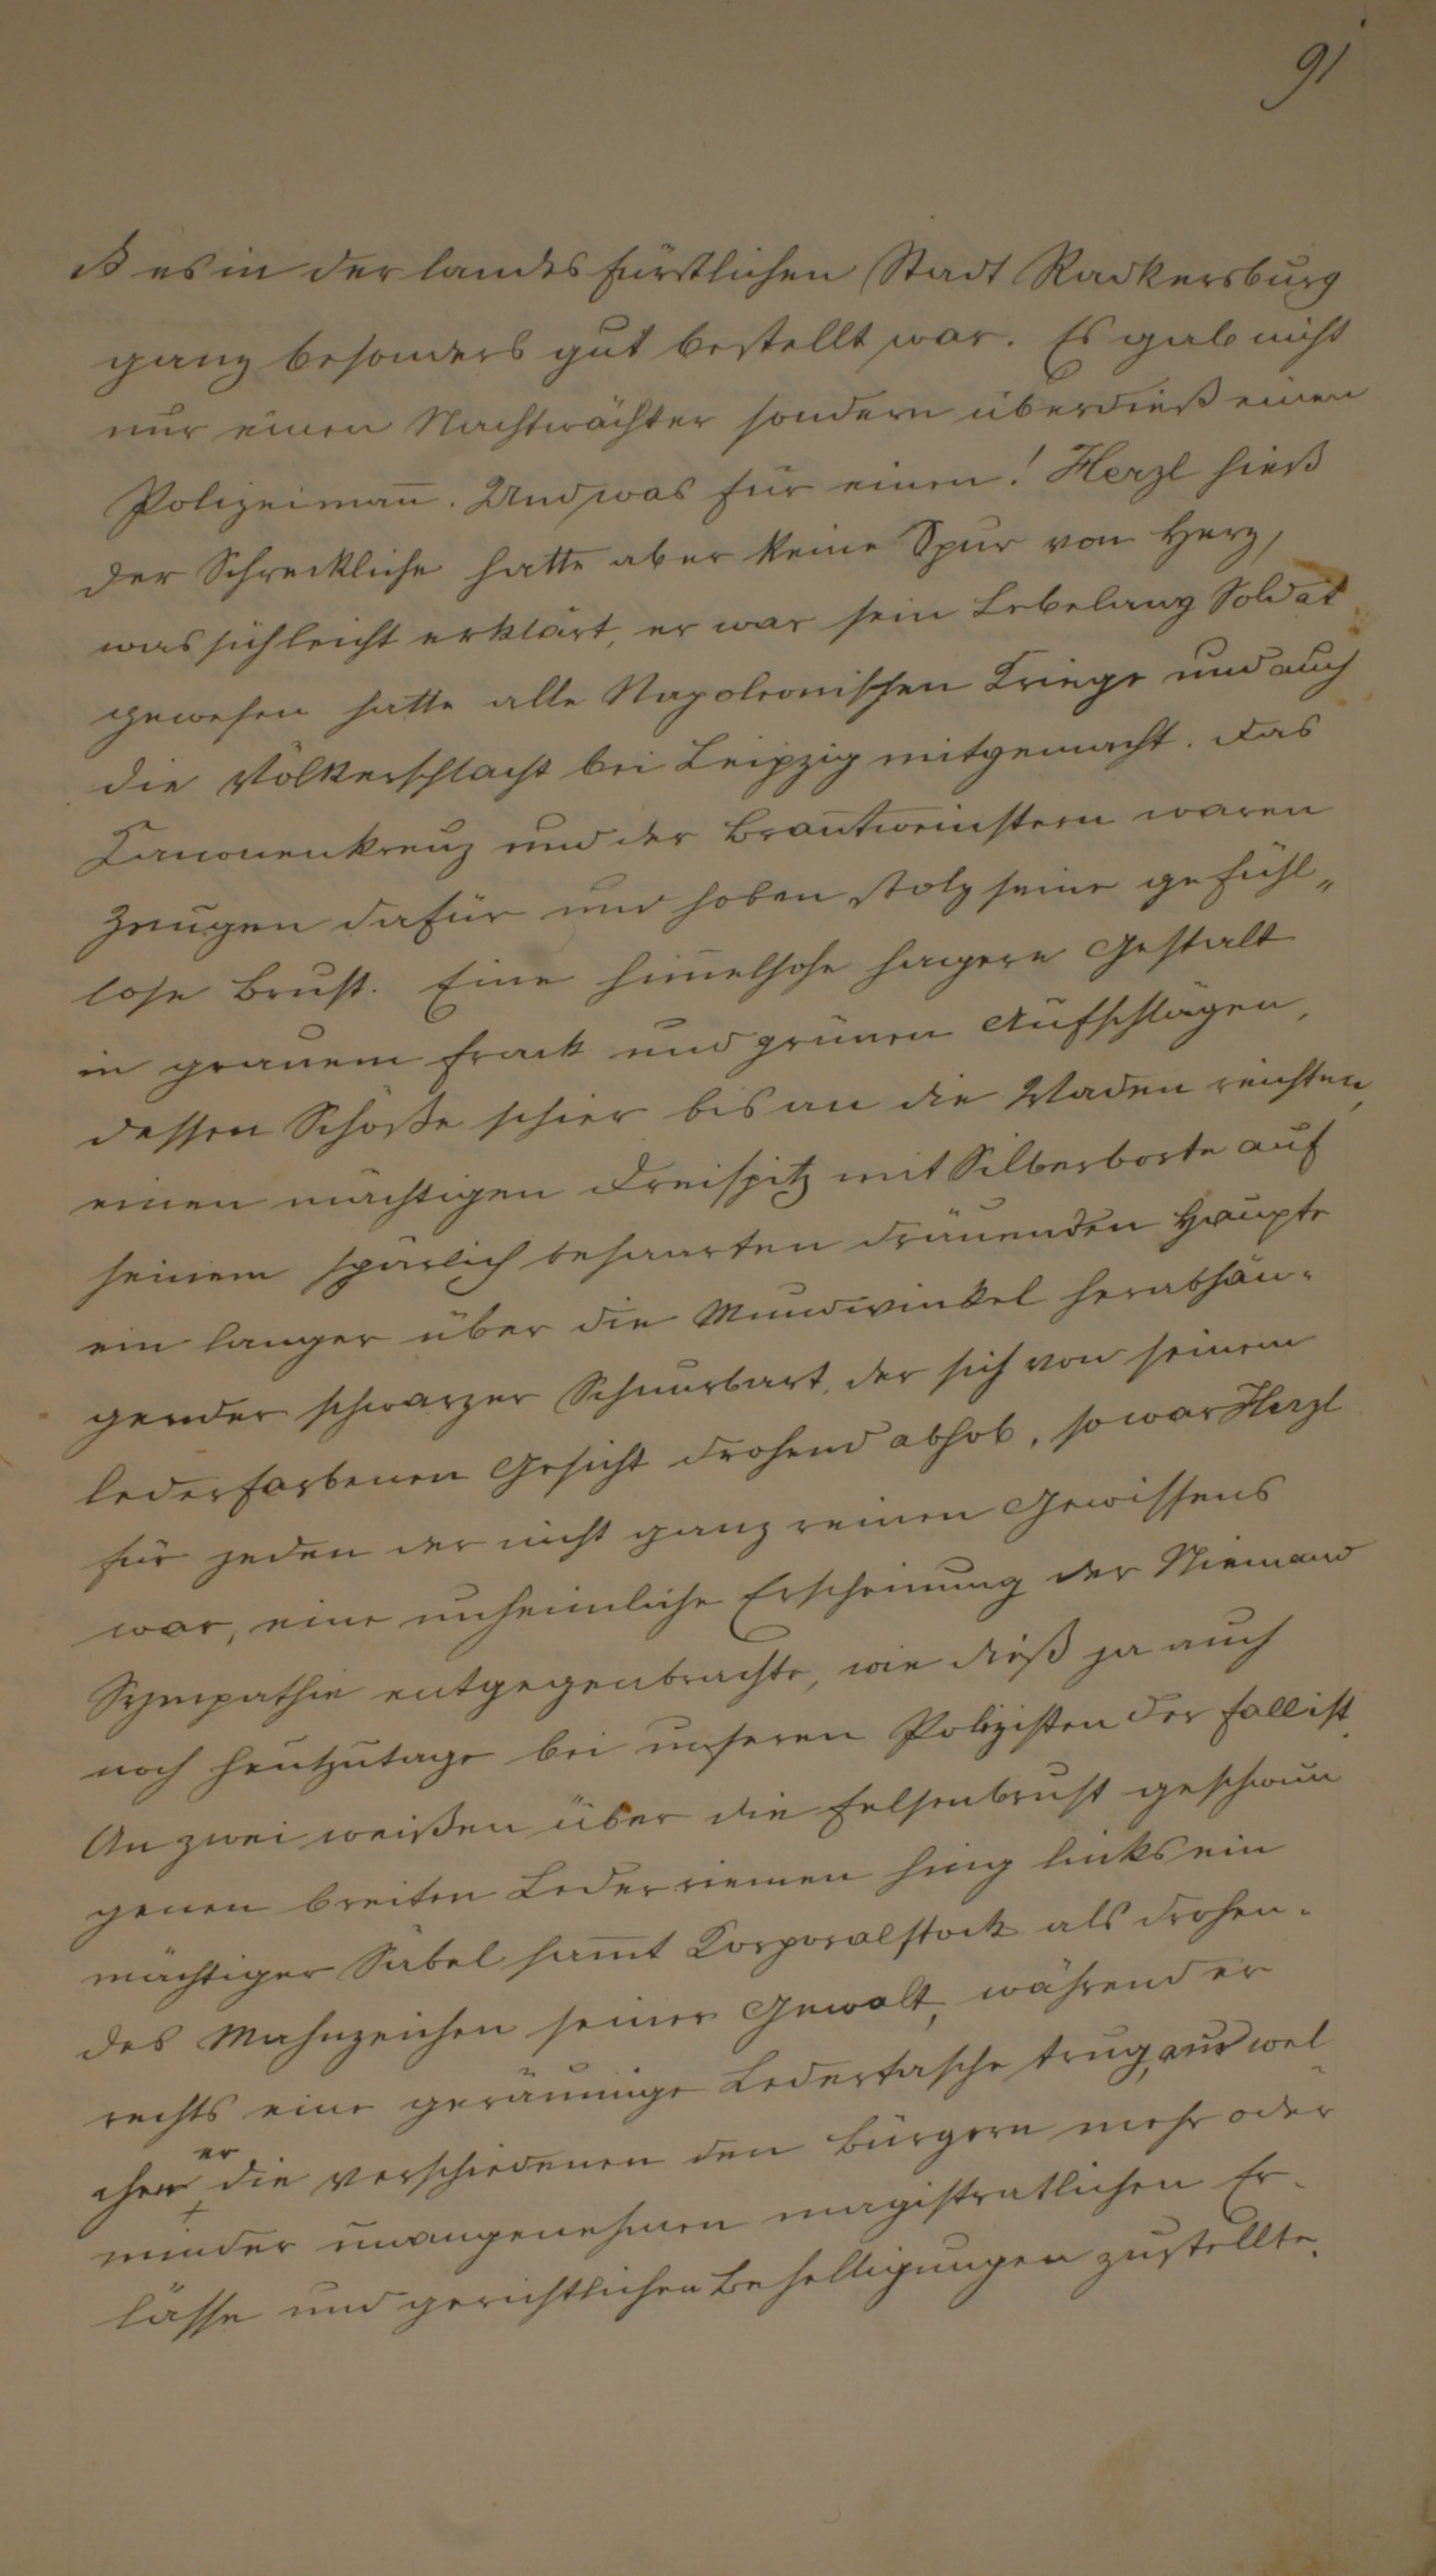 91
ß es in der landesfürstlichen Stadt Radkersburg
ganz besonders gut bestellt war. Es gab nicht
nur einen Nachtwächter sondern überdieß einen
Polizeimañ. Und was für einen! Herzl hieß
der Schreckliche hatte aber keine Spur von Herz,
was sich leicht erklärt, er war sein Lebelang Soldat
gewesen hatte alle Napoleonischen Kriege und auch
die Völkerschlacht bei Leipzig mitgemacht. Das
Kanonenkreuz und der Brañtweinstern waren
Zeugen dafür und hoben stolz seine gefühl„
lose Brust. Eine him̅elhohe hagere Gestalt
in grauem Frack und grünen Aufschlägen,
dessen Schöße schier bis an die Waden reichten,
einen mächtigen Dreispitz mit Silberborte auf
seinem spärlich behaarten dräuenden Haupte
ein langer über die Mundwinkel herabhän-
gender schwarzer Schnurbart, der sich von seinem
lederfarbenen Gesicht drohend abhob, so war Herzl
für jeden der nicht ganz reinen Gewissens
war, eine unheimliche Erscheinung der Niemand
Sympathie entgegenbrachte, wie dieß ja auch
noch heutzutage bei unseren Polizisten der Fall ist.
An zwei weißen über die Felsenbrust geschwun
genen breiten Lederriemen hing links ein
mächtiger Säbel sam̅t Korporalstock als drohen-
des Mahnzeichen seiner Gewalt, während er
rechts eine geräumige Ledertasche trug, aus wel-
cher er die verschiedenen den Bürgern mehr oder
minder unangenehmen magistratlichen Er-
lässe und gerichtlichen Behelligungen zustellte.